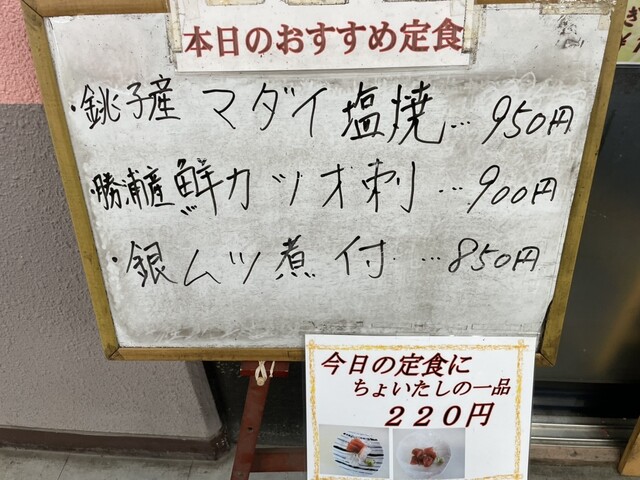 本日のおすすめ定食
・銚子産 マダイ塩焼…950円
・勝浦産 鮮カツオ刺…900円
・銀ムツ煮付…850円
今日の定食に
ちょいたしの一品
220円